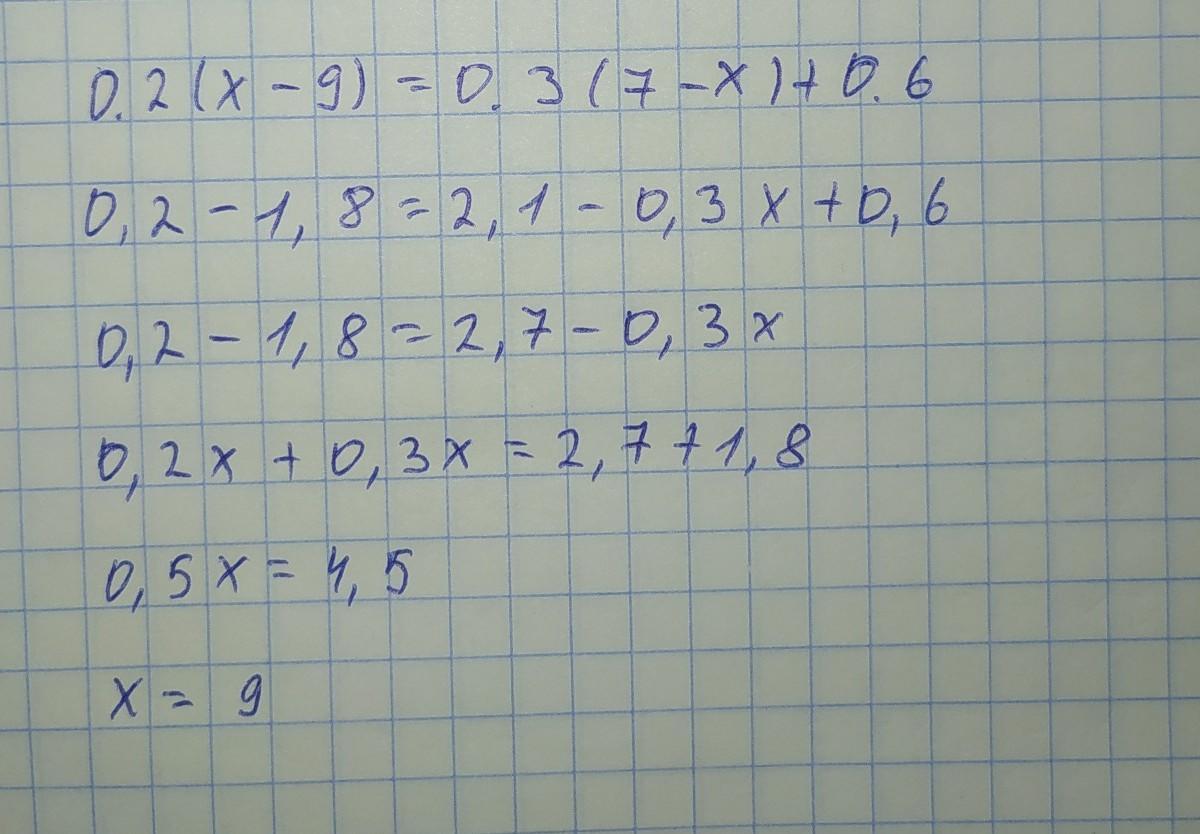 0.2(x-9)=0.3(7-x)+0.6
0,2-1,8=2,1-0,3x+0,6
0,2-1,8=2,7-0,3x
0,2x+0,3x=2,7+1,8
0,5x=4,5
x=9